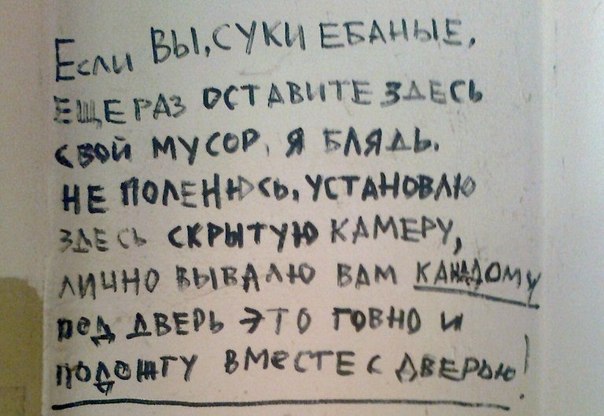 Если ВЫ, СУКИ ЕБАНЫЕ,
ЕЩЕ РАЗ ОСТАВИТЕ ЗДЕСЬ
СВОЙ МУСОР, Я БЛЯДЬ.
НЕ ПОЛЕНЮСЬ, УСТАНОВЛЮ
ЗДЕСЬ СКРЫТУЮ КАМЕРУ,
ЛИЧНО ВЫВАЛЮ ВАМ КАЖДОМУ
ПОД ДВЕРЬ ЭТО ГОВНО И
ПОДОЖГУ ВМЕСТЕ С ДВЕРЬЮ!